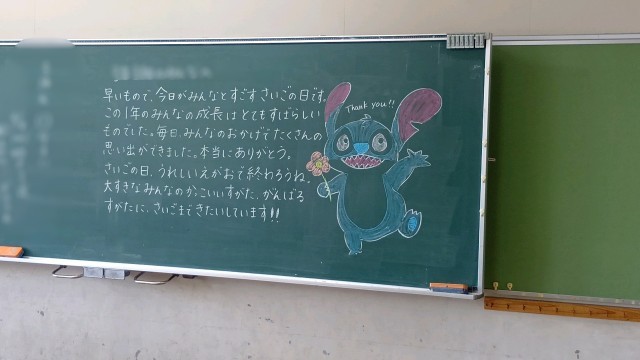 早いもので、今日がみんなとすごすさいごの日です。
この1年のみんなの成長はとてもすばらしい
ものでした。毎日、みんなのおかげでたくさんの
思い出ができました。本当にありがとう。
さいごの日、うれしいえがおで終わろうね。
大すきなみんなのかっこいいすがた、がんばる
すがたに、さいごまできたいしています!!
Thank you!!